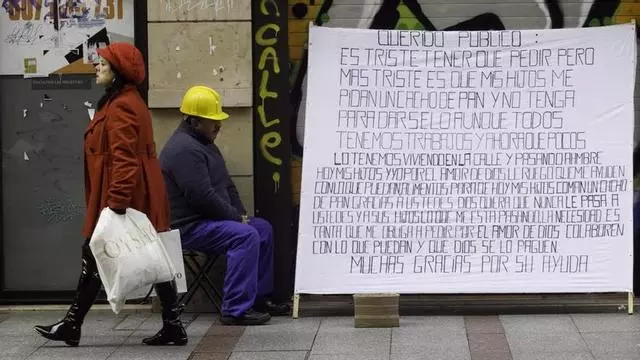 QUERIDO PUBLICO :
ES TRISTE TENER QUE PEDIR PERO
MAS TRISTE ES QUE MIS HIJOS ME
PIDAN UN CACHO DE PAN Y NO TENGA
PARA DARSELO AUNQUE TODOS
TENEMOS TRABAJOS Y AHORA QUE POCOS
LO TENEMOS VIVIENDO EN LA CALLE Y PASANDO AHMBRE
HOY MIS HIJOS Y YO POR EL AMOR DE DIOS LE RUEGO QUE ME AYUDEN
CON LO QUE PUEDAN ALIMENTOS PARA DE HOY MIS HIJOS COMAN UN CACHO
DE PAN GRACIAS A USTEDES DIOS QUERA QUE NUNCA LE PASA A
USTEDES Y A SUS HIJOS LO QUE ME ESTA PASANDO LA NECESIDAD ES
TANTA QUE ME OBLIGA A PEDIR POR EL AMOR DE DIOS COLABOREN
CON LO QUE PUEDAN Y QUE DIOS SE LO PAGUEN
MUCHAS GRACIAS POR SU AYUDA
CALLE